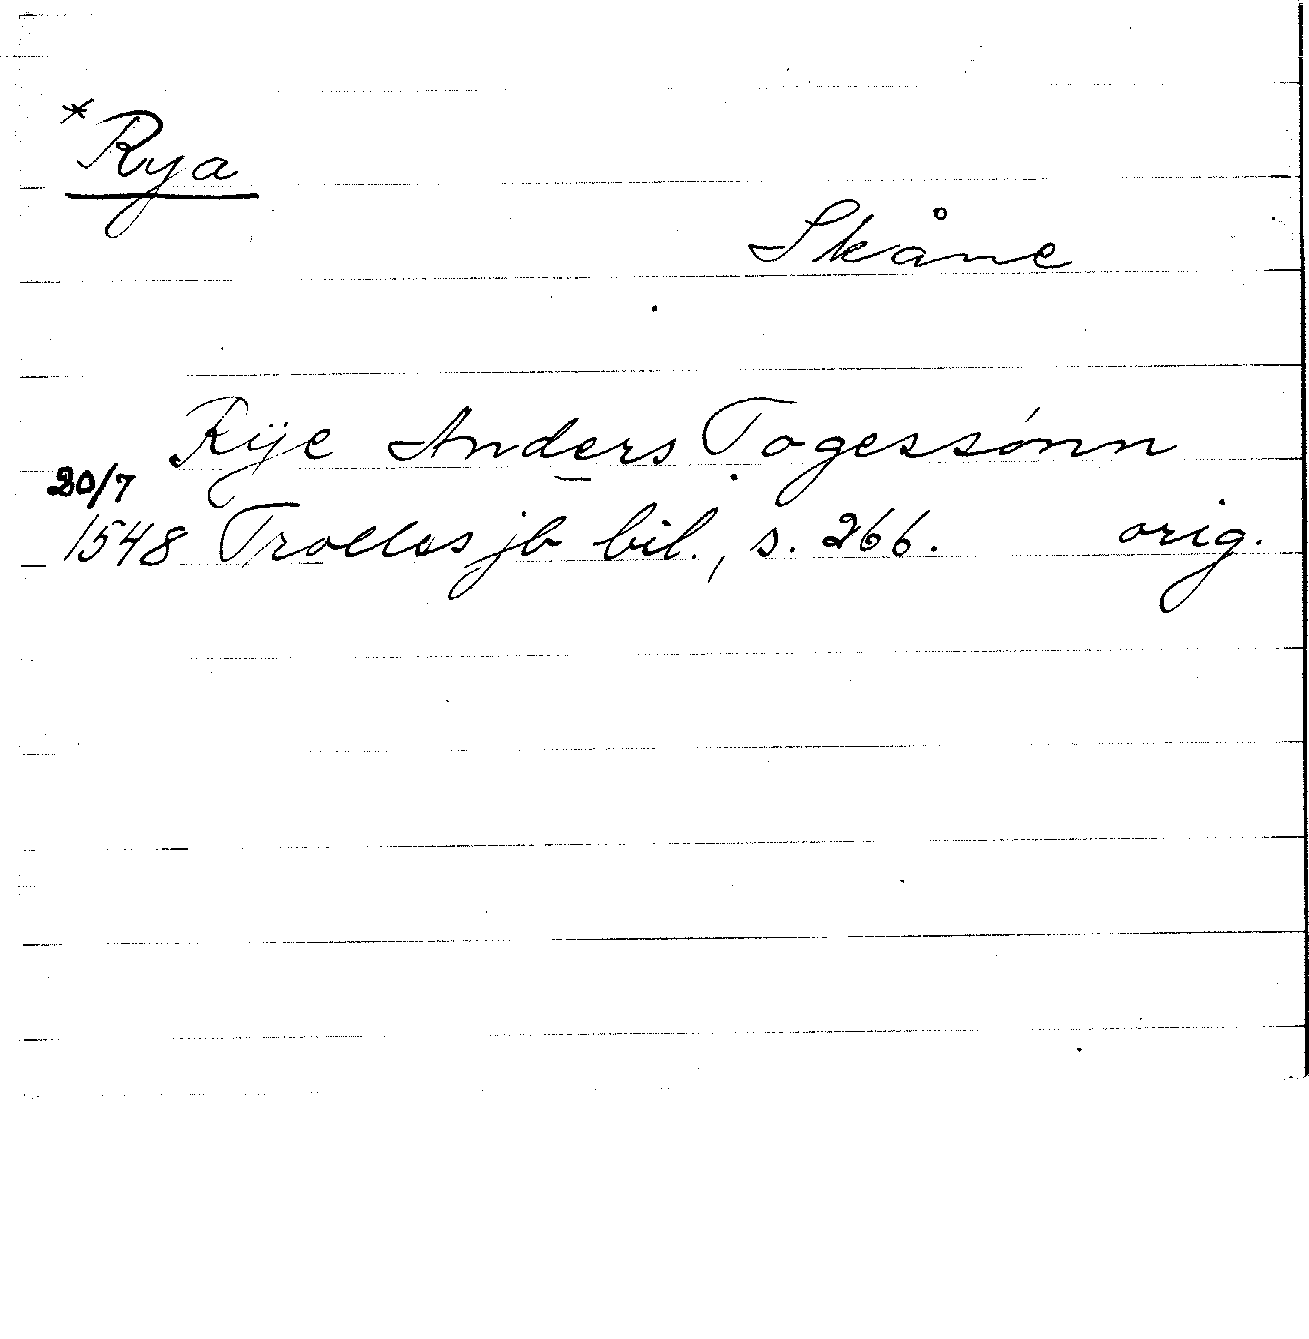 *Rya
Skåne
Rÿe Anders Togessónn
20/7
1548 Trolles jb bil., s. 266. orig.